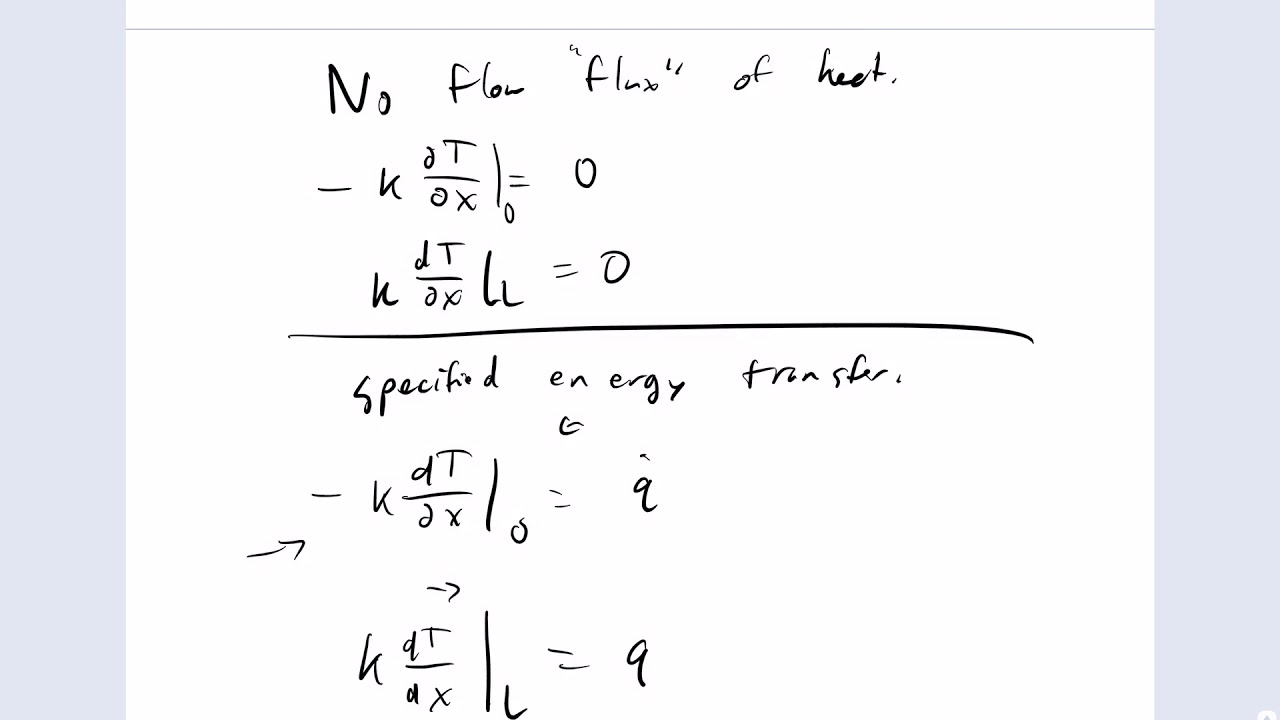 No flow "flux" of heat.
− k ∂T/∂x |₀ = 0
k dT/∂x |L = 0
specified energy transfer.
←
− k dT/∂x |₀ = q̇
→
→
k dT/dx |L = q